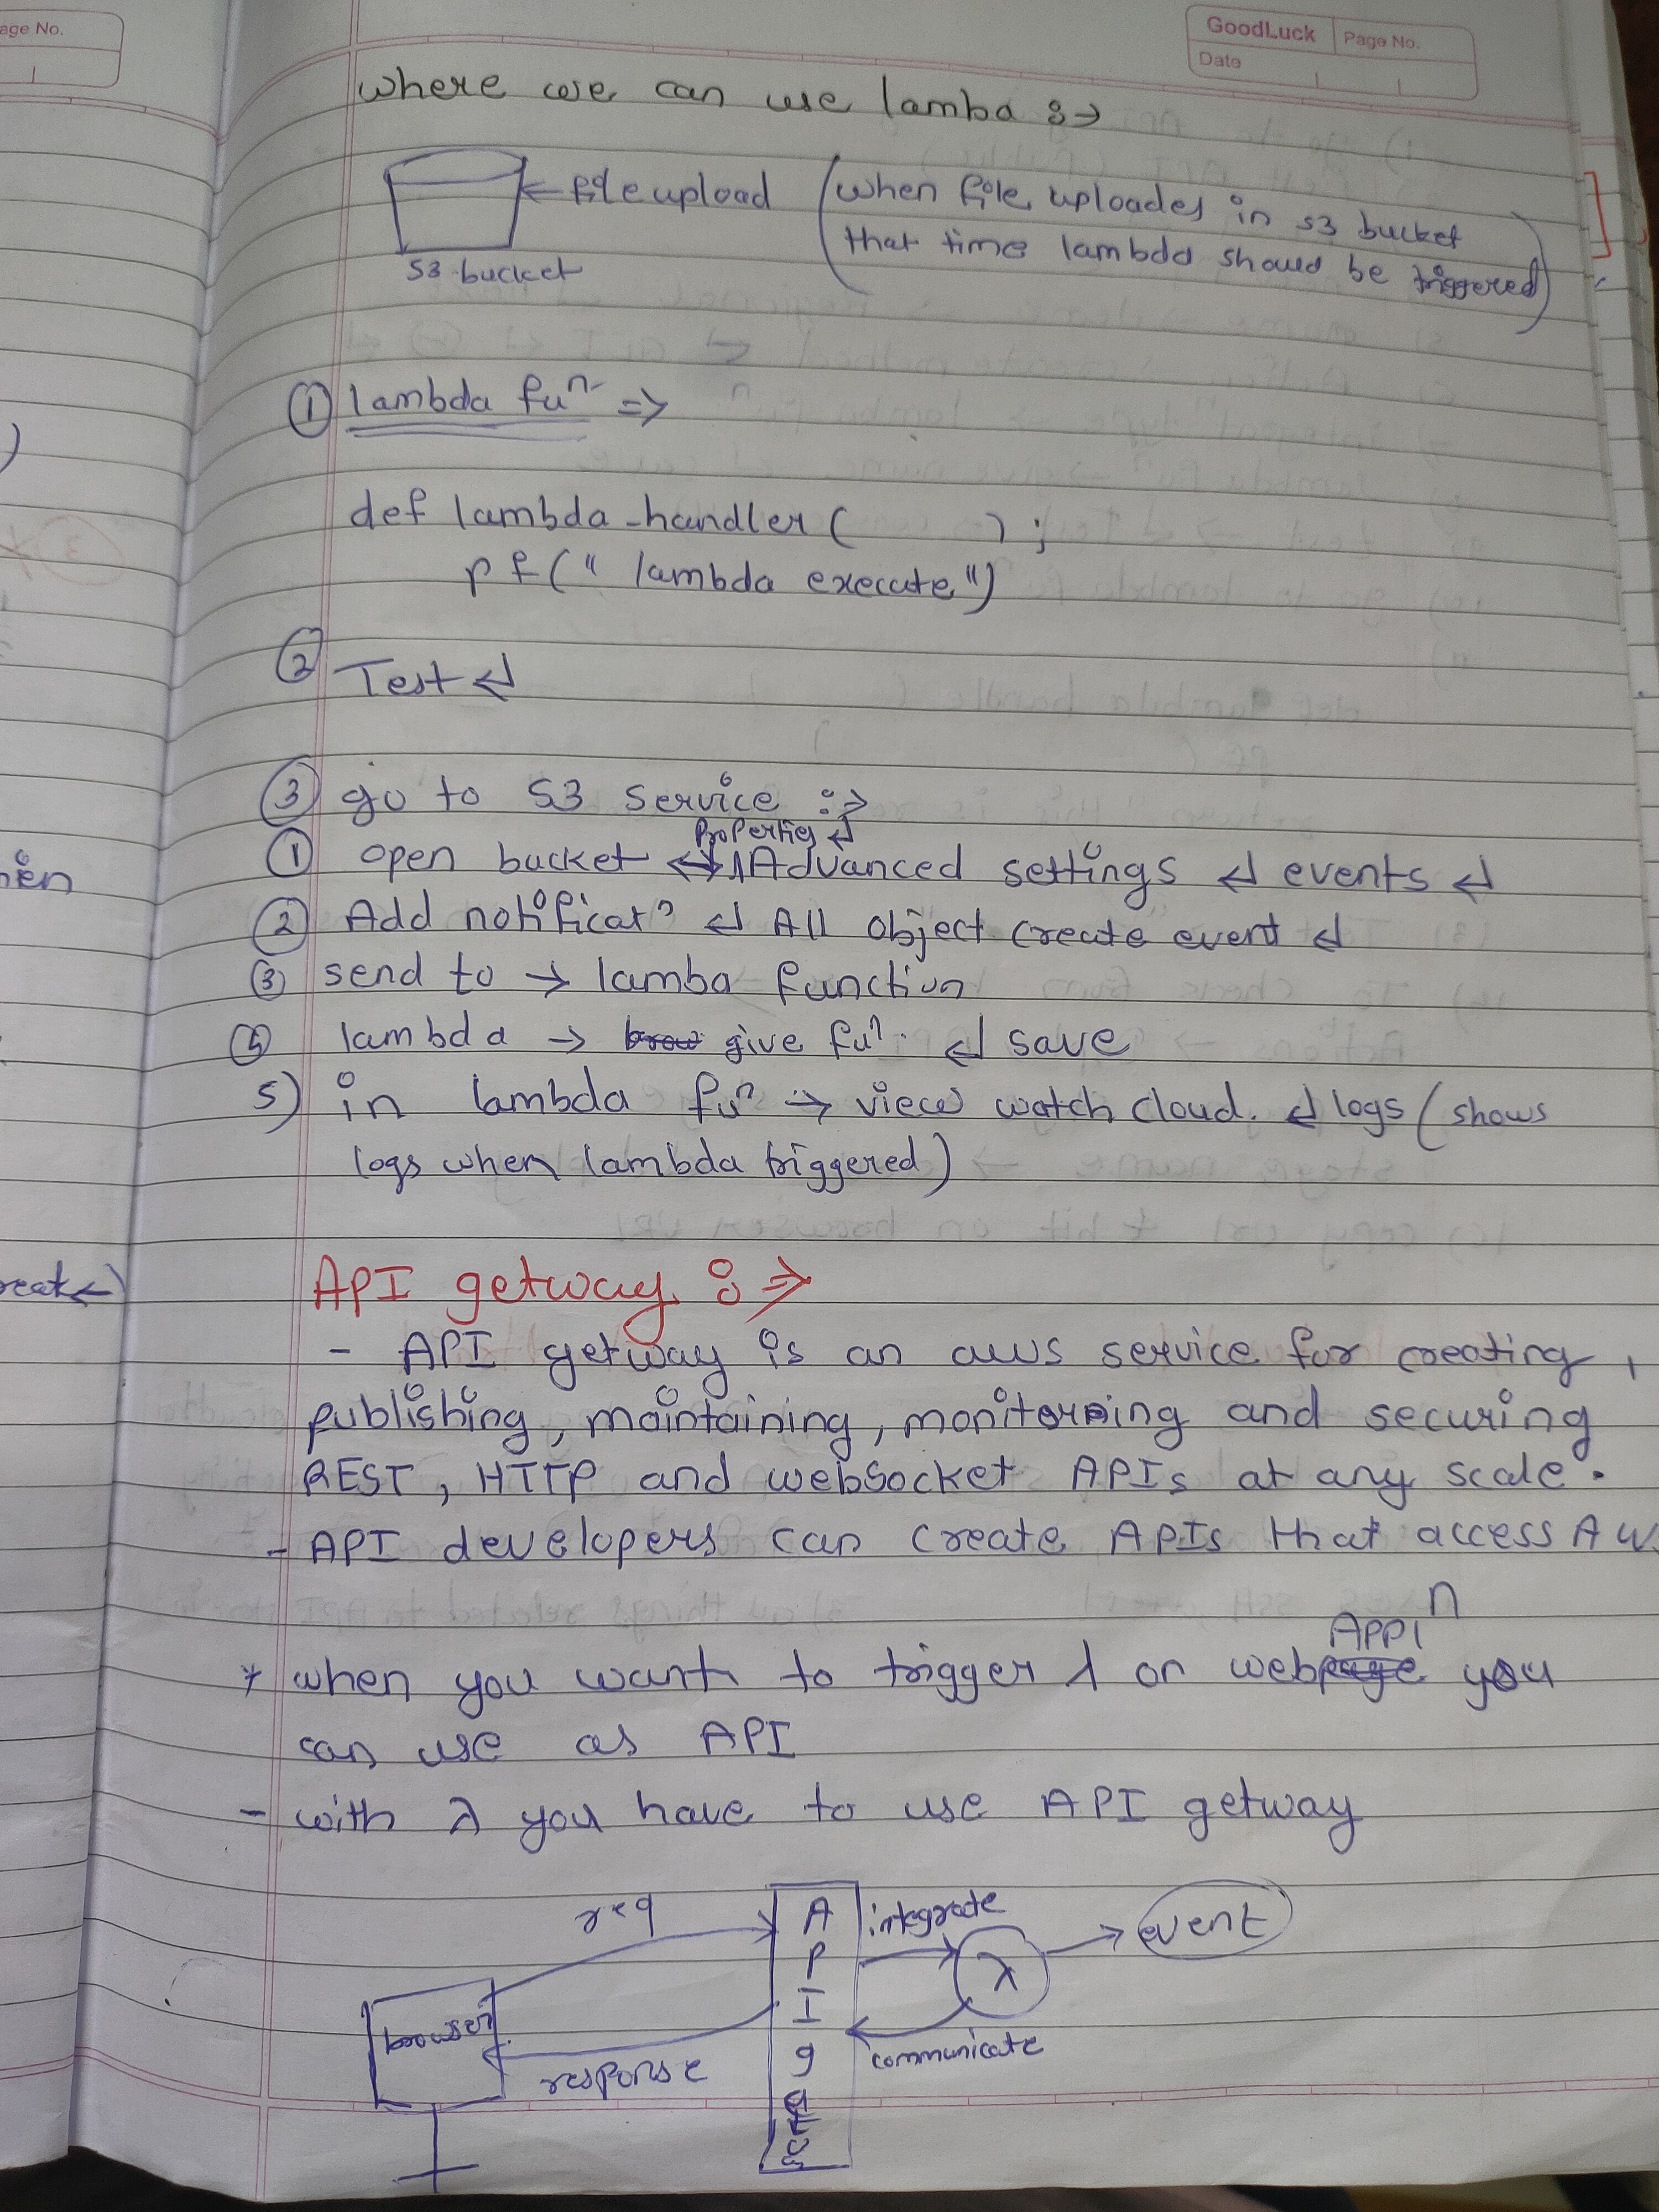 age No.
GoodLuck
Page No.
Date
where we can use lamba :→
← file upload (when file uploades in S3 bucket
that time lambda should be triggered)
S3 bucket
① lambda fuⁿ ⇒
def lambda-handler( ) ;
pf(" lambda execute")
② Test ↵
③ go to S3 service :⇒
Properties ↵
① open bucket ↔ Advanced settings ↵ events ↵
② Add notificatⁿ ↵ All object create event ↵
③ send to → lamba function
lambda → give fuⁿ. ↵ save
5) in lambda fuⁿ → view watch cloud. ↵ logs (shows
logs when lambda triggered)
API getway :⇒
- API getway is an aws service for creating,
publishing, maintaining, monitoring and securing
REST, HTTP and websocket APIs at any scale.
- API developers can create APIs that access AW
Applⁿ
* when you want to trigger λ on webpage you
can use as API
- with λ you have to use API getway
req
A P I g
integrate
λ
→ event
browser
response
communicate